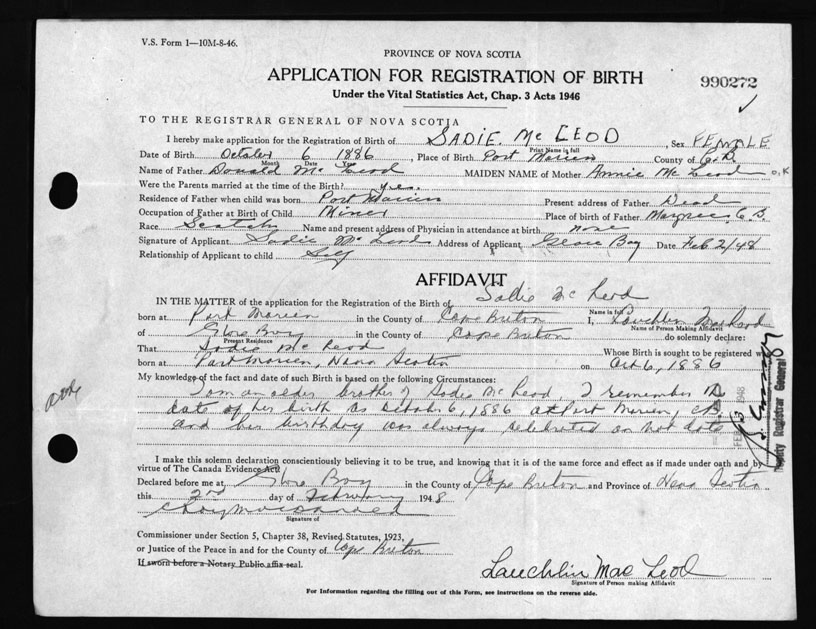 V.S. Form 1—10M-8-46.
PROVINCE OF NOVA SCOTIA
APPLICATION FOR REGISTRATION OF BIRTH
990272
Under the Vital Statistics Act, Chap. 3 Acts 1946
TO THE REGISTRAR GENERAL OF NOVA SCOTIA
I hereby make application for the Registration of Birth of SADIE Mc LEOD , Sex FEMALE
Print Name in full
Date of Birth October 6 1886 , Place of Birth Port Morien County of C.B.
Month Date Year
Name of Father Donald Mc Leod MAIDEN NAME of Mother Annie Mc Leod O.K
Were the Parents married at the time of the Birth? yes.
Residence of Father when child was born Port Morien Present address of Father Dead
Occupation of Father at Birth of Child Miner Place of birth of Father Margaree C.B.
Race Scotch Name and present address of Physician in attendance at birth none
Signature of Applicant Sadie Mc Leod Address of Applicant Glace Bay Date Feb 2/48
Relationship of Applicant to child Self
AFFIDAVIT
IN THE MATTER of the application for the Registration of the Birth of Sadie Mc Leod
Name in full
born at Port Morien in the County of Cape Breton I, Lauchlin MacLeod
Name of Person Making Affidavit
of Glace Bay in the County of Cape Breton do solemnly declare:
Present Residence
That Sadie Mc Leod Whose Birth is sought to be registered was
born at Port Morien, Nova Scotia on Oct 6, 1886
My knowledge of the fact and date of such Birth is based on the following Circumstances:
I am an older brother of Sadie Mc Leod I remember the
date of her birth as October 6, 1886 at Port Morien, C.B.
and her birthday was always celebrated on that date
FEB 1948
Deputy Registrar General
I make this solemn declaration conscientiously believing it to be true, and knowing that it is of the same force and effect as if made under oath and by
virtue of The Canada Evidence Act
Declared before me at Glace Bay in the County of Cape Breton and Province of Nova Scotia
this 2nd day of February 1948
Signature of
Commissioner under Section 5, Chapter 38, Revised Statutes, 1923,
or Justice of the Peace in and for the County of Cape Breton
If sword before a Notary Public affix seal.
Lauchlin Mac Leod
Signature of Person making Affidavit
For Information regarding the filling out of this Form, see instructions on the reverse side.